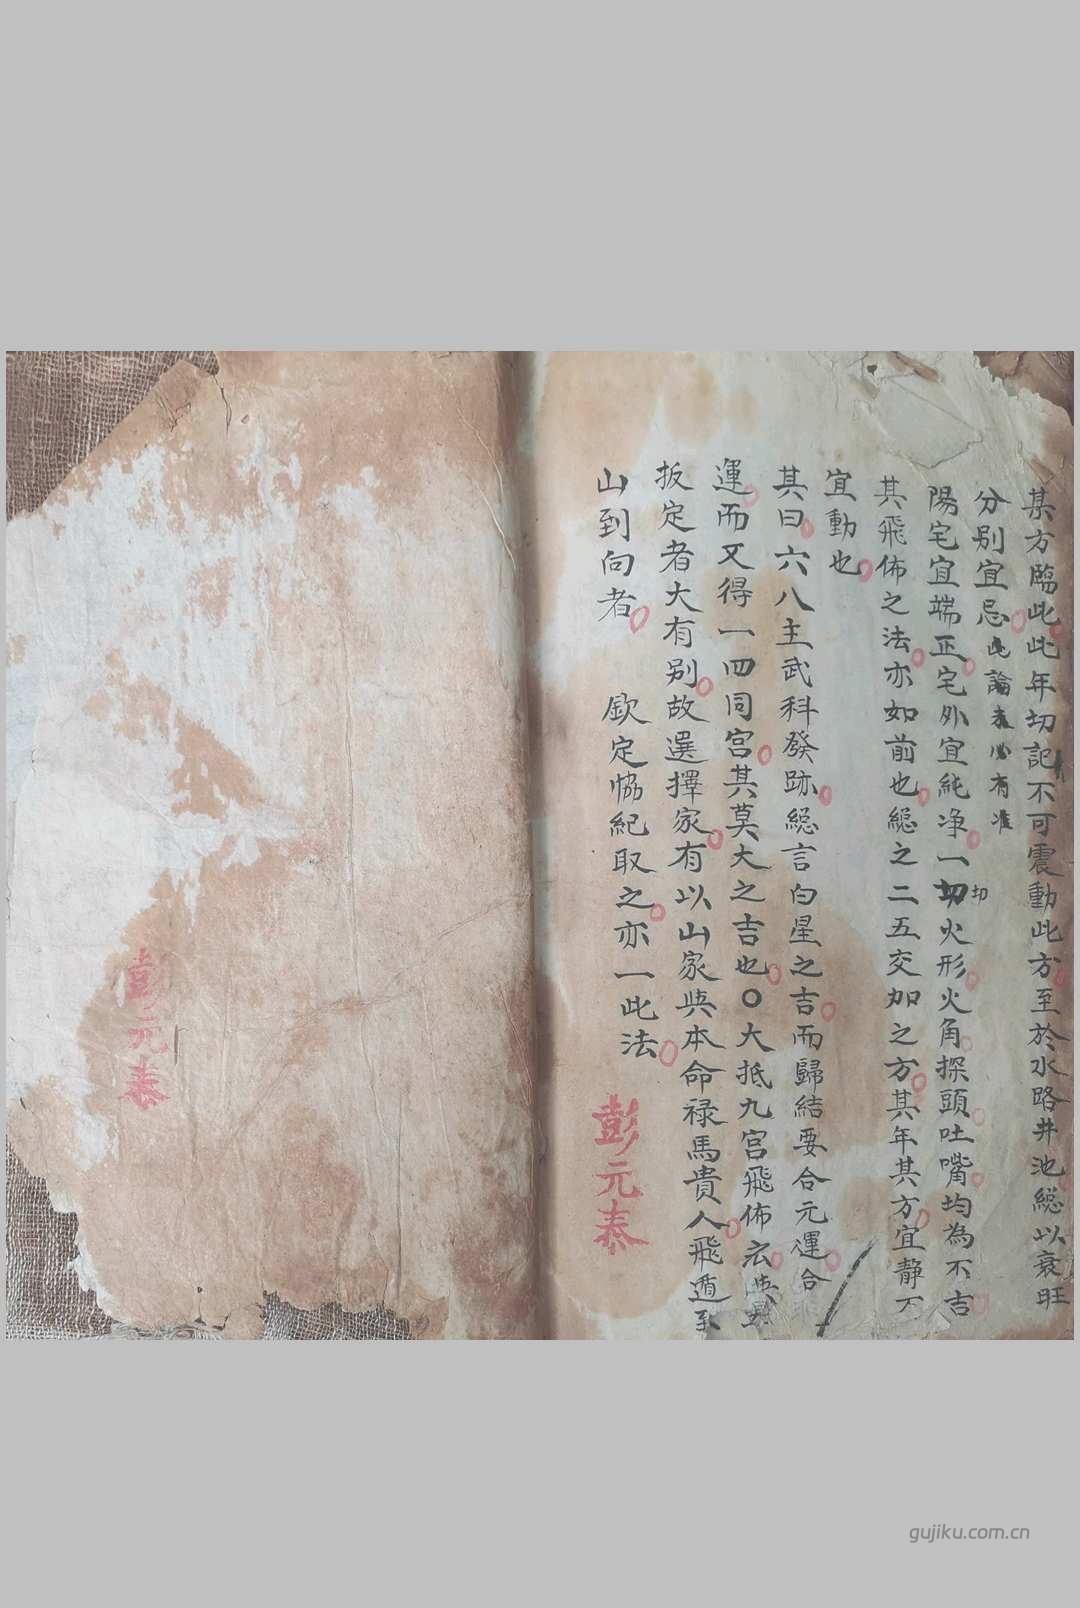 某方臨此此年切記不可震動此方至於水路井池縂以衰旺
分别宜忌此論表必有准
陽宅宜端正宅外宜純净一切火形火角探頭吐嘴均為不吉
切
其飛佈之法亦如前也縂之二五交加之方其年其方宜静不
宜動也
其曰六八主武科發跡縂言白星之吉而歸結要合元運合
運而又得一四同宫其莫大之吉也〇大抵九宫飛佈宏
扳定者大有别故選擇家有以山家與本命禄馬貴人飛遁至
山到向者 欽定恊紀取之亦一此法
彭元泰
彭元泰
gujiku.com.cn